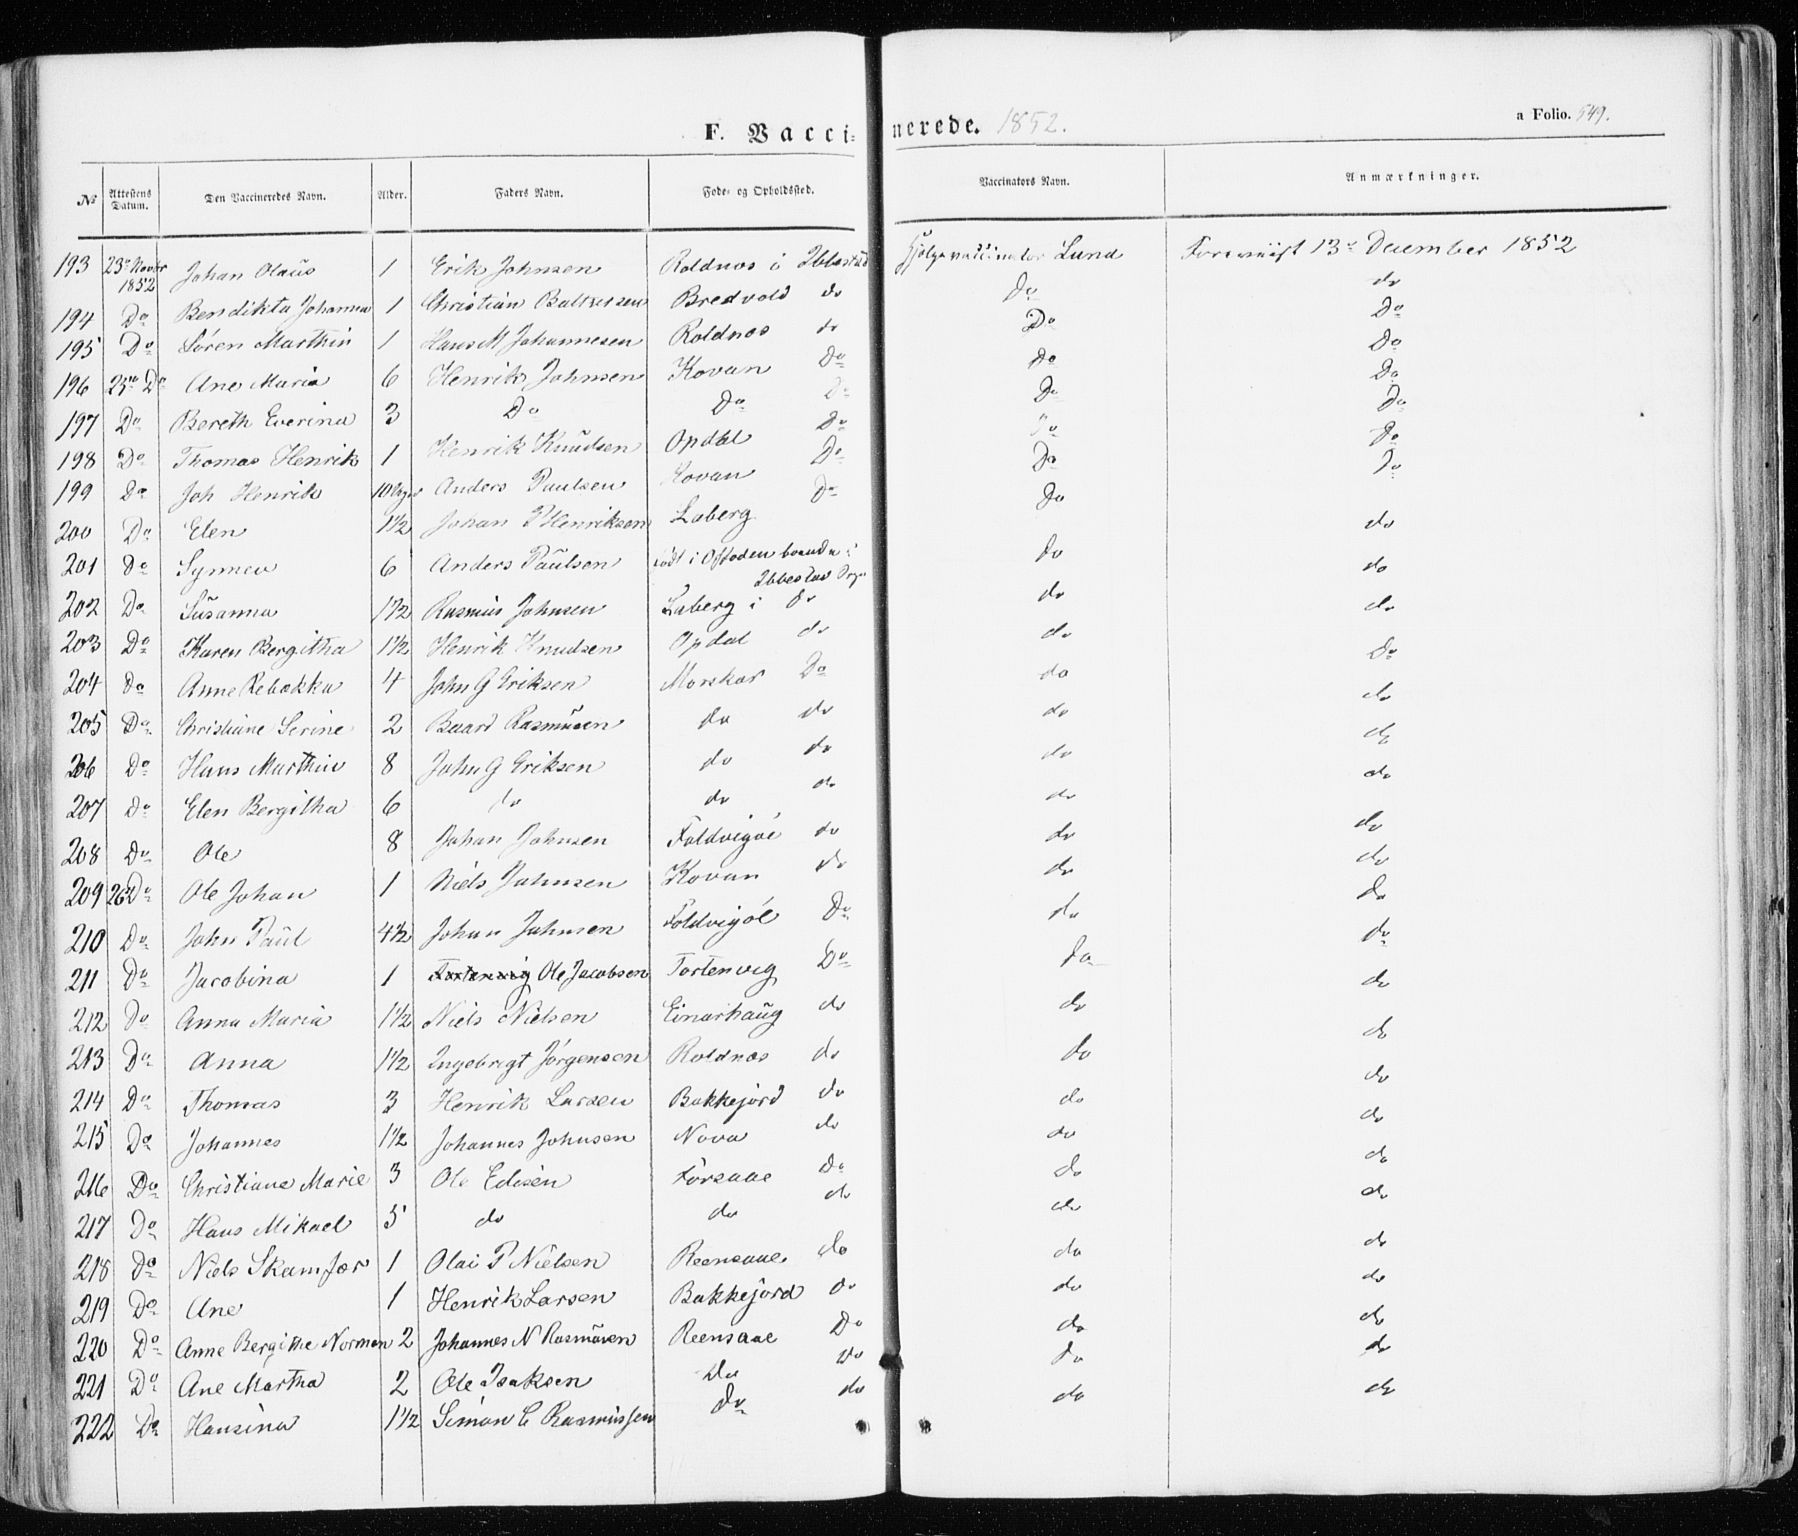 F. Vaccinerede. 1852.
a Folio. 549.
No Attestens Datum. Den Vaccineredes Navn. Alder. Faders Navn. Føde- og Opholdssted. Vaccinators Navn. Anmærkninger.
193 23de Novbr 1852 Johan Olaüs 1 Erik Johnsen Roldnæs i Ibbestad Hjelpevaccinator Lund Foreviist 13de December 1852
194 Do Bendikta Johanna 1 Christian Baltzersen Bredvold do Do do
195 Do Søren Marthin 1 Hans M Johannesen Roldnæs do Do Do
196 25de Do Ane Maria 6 Henrik Johnsen Kovan Do Do Do
197 Do Bereth Everina 3 Do Do Do Do Do
198 Do Thomas Henrik 1 Henrik Knudsen Opdal Do Do Do
199 Do Joh Henrik 10 Uger Anders Paulsen Kovan Do Do Do
200 Do Elen 1½ Johan P Henriksen Laberg Do Do Do
201 Do Synnev 6 Anders Paulsen født i Ofoden boende i Ibbestad Do do
202 Do Susanna 1½ Rasmus Johnsen Laberg i do do do
203 Do Karen Bergitha 1½ Henrik Knudsen Opdal do do do
204 Do Anne Rebækka 4 John G Eriksen Morskar Do do Do
205 Do Christiane Serine 2 Baard Rasmüsen do do do do
206 Do Hans Marthin 8 John G Eriksen do do do do
207 Do Elen Bergitha 6 do do do do do
208 Do Ole 8 Johan Johnsen Foldvigøe do do do
209 26de Do Ole Johan 1 Niels Johnsen Kovan do do do
210 Do John Paul 4½ Johan Johnsen Foldvigøe Do do do
211 Do Jacobina 1 Tortenvig Ole Jacobsen Tortenvig Do Do do
212 Do Anna Maria 1½ Niels Nielsen Einarhaug do do do
213 Do Anna 1½ Ingebrigt Jørgensen Roldnæs do do do
214 Do Thomas 3 Henrik Larsen Bakkejord do do do
215 Do Johannes 1½ Johannes Johnsen Nova do do do
216 Do Christiane Marie 3 Ole Edisen Førsaae Do do do
217 Do Hans Mikael 5 do do do do do
218 Do Niels Skamfær 1 Olai P Nielsen Reensaae do do do
219 Do Ane 1 Henrik Larsen Bakkejord do do do
220 Do Anne Bergithe Norman 2 Johannes N Rasmüsen Reensaae Do do do
221 Do Ane Martha 2 Ole Isaksen Do do do do
222 Do Hansina 1½ Simon C Rasmussen Do do do do